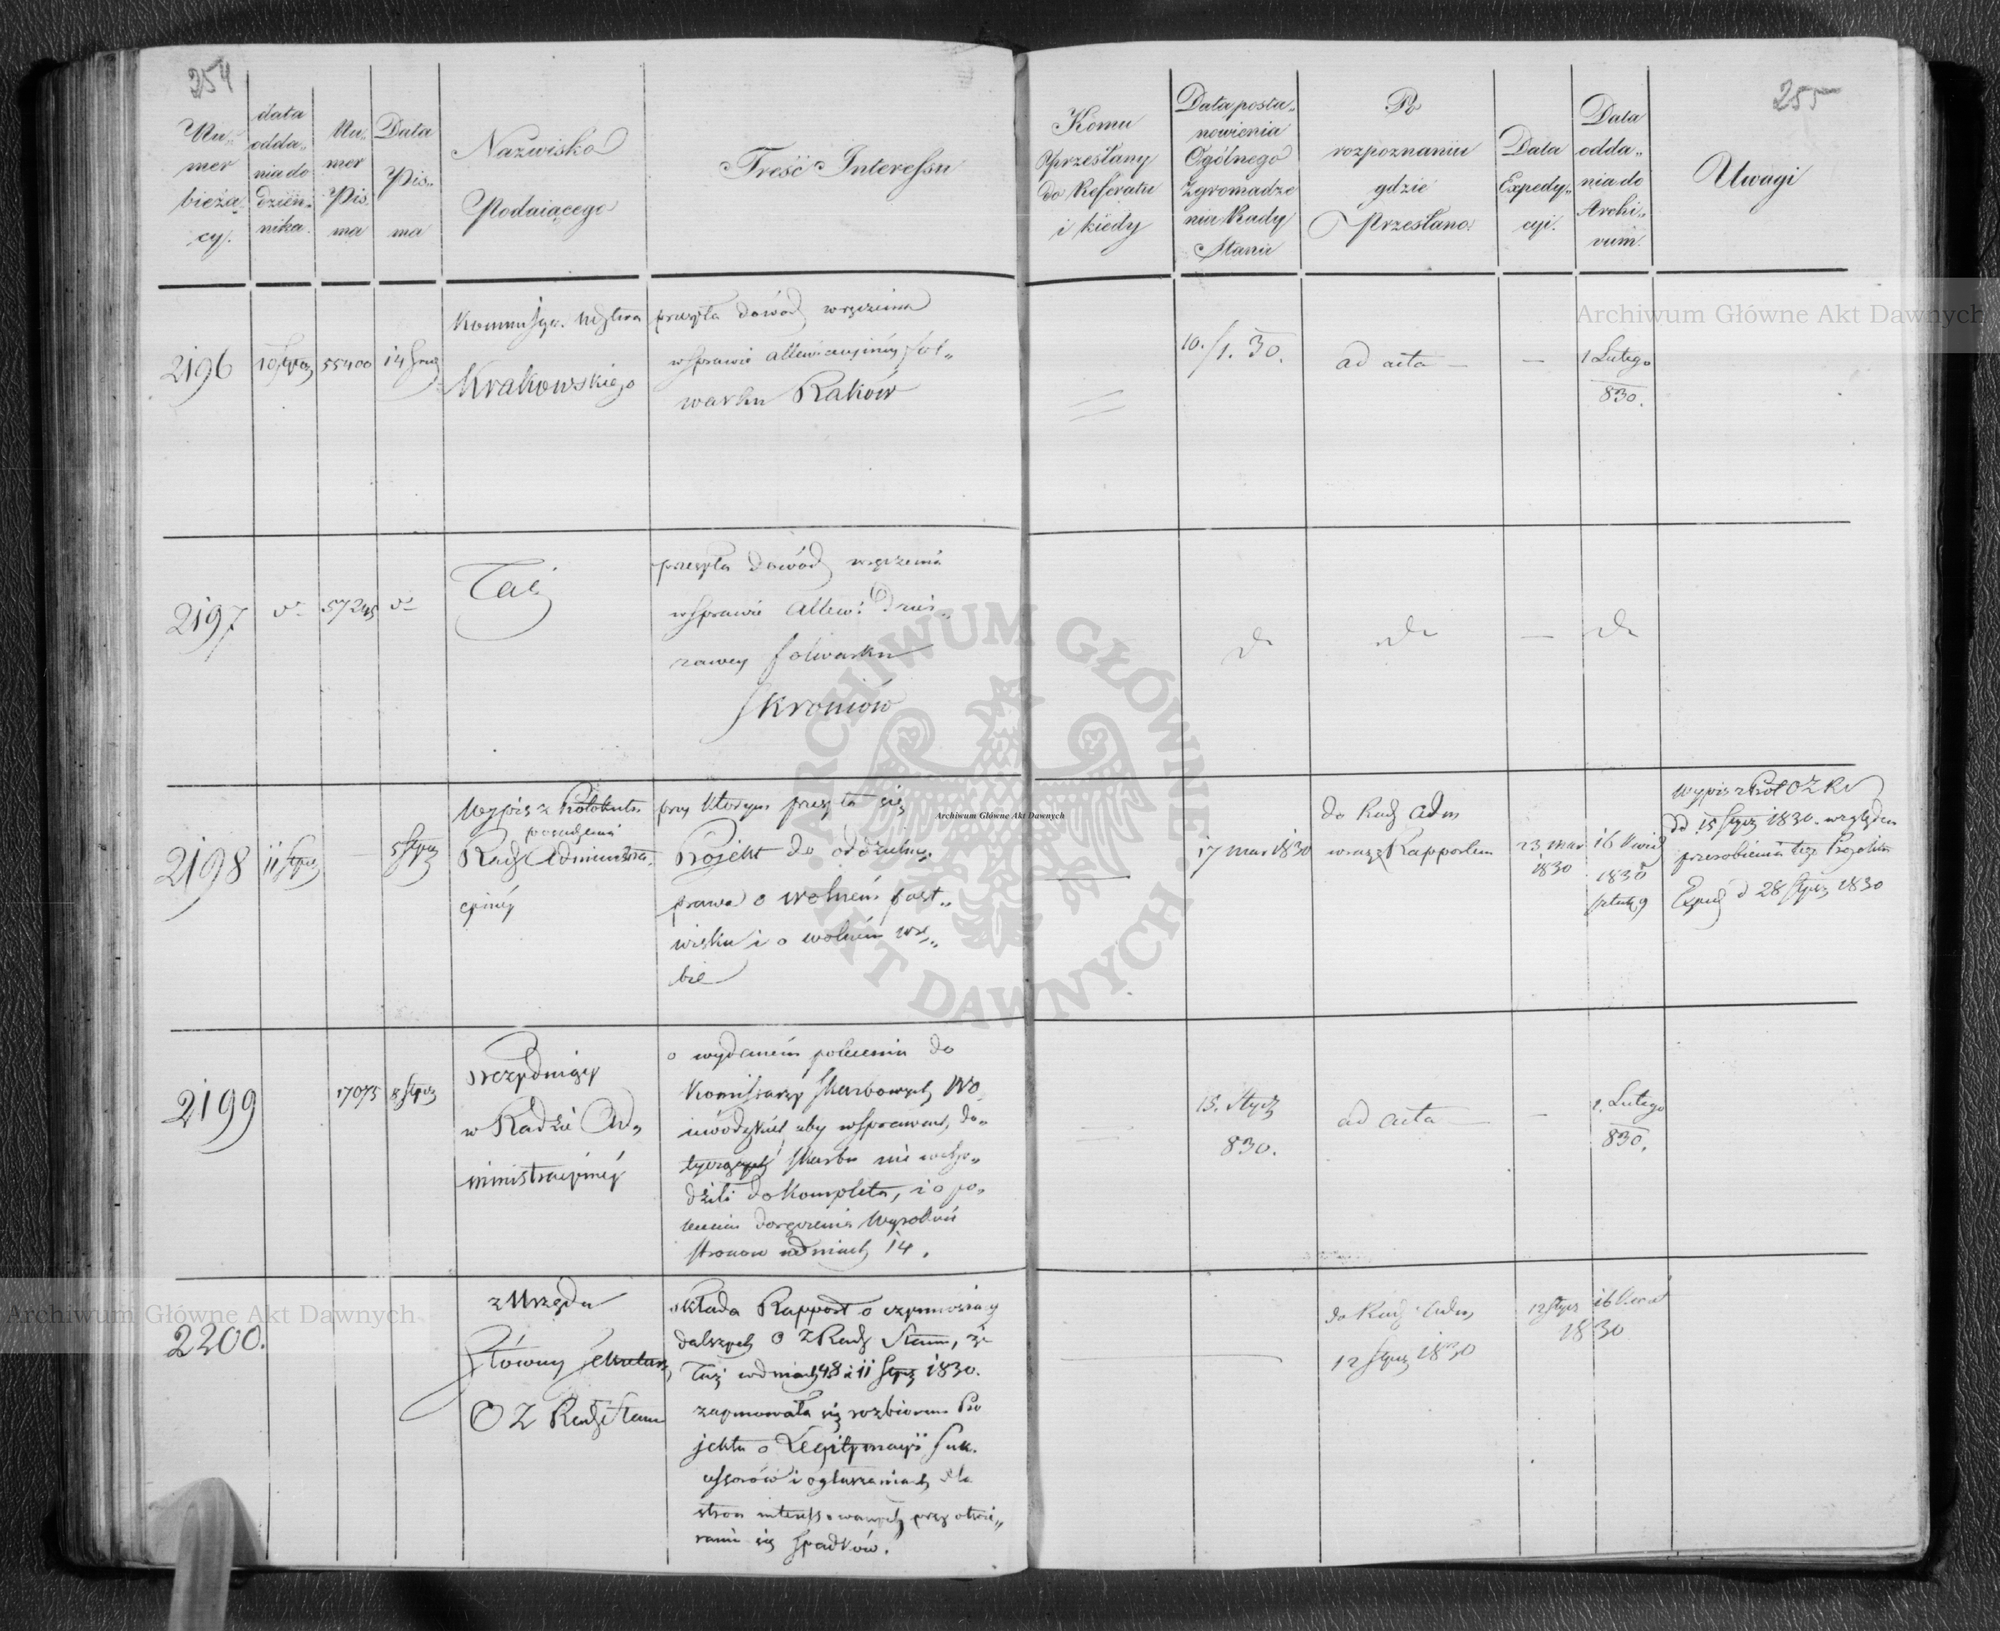 254
Nu-
mer
bieżą-
cy.
data
odda-
nia do
dzien-
nika.
Nu-
mer
Pis-
ma
Data
Pis-
ma
Nazwisko
Podaiącego
Treść Interessu
Komu
Przesłany
do Referatu
i kiedy
Data posta-
nowienia
Ogólnego
Zgromadze
nia Rady
Stanu
Po
rozpoznaniu
gdzie
Przesłano
Data
Expedy-
cyi.
Data
odda-
nia do
Archi-
vum.
Uwagi
255
2196
10 Stycz
55400
14 Grud
Krakowskiego
przesyła dowód wręczenia
w sprawie
warku Raków
10./1. 30.
ad acta —
—
1 Lutego
830.
2197
57245
Taż
przesyła dowód wręczenia
w sprawie allew:
zawey folwarku
Skroniów
—
2198
11 Stycz
—
5 Stycz
Wypis z Protokułu
posiedzenia
Rady Administra-
cyiney
przy którym przesyła się
Projekt do oddziału
prawa o wolném past-
wisku i o wolném wrę-
bie
17 mar 1830
do Rady Adm
wraz z Rapportem
23 mar
1830
16 Kwie
1830
Wypis z Prot OZRS
dd 15 Stycz 1830. względem
przerobienia tego Projektu
Exped d 28 Stycz 1830
2199
17075
8 Stycz
Prezyduiący
w Radzie Ad-
ministracyiney
o wydaniem polecenia do
Komissarzy Skarbowych Wo-
iewódzkich aby w sprawach do-
tyczących Skarbu nie wcho-
dzili do Kompletu, i o po-
leceniu doręczenia Wyroków
stronom w dniach 14.
15. Stycz
830.
ad acta —
—
1. Lutego
830.
2200.
z Urzędu
Główny Sekretarz
O Z Rady Stanu
składa Rapport o czynnościach
dalszych O Z Rady Stanu, że
Taż w dniach 4 8 i 11 Stycz 1830.
zajmowała się rozbiorem Pro
jektu o Legitymacyi Suk-
cessorów i ogłoszeniach dla
stron interessowanych przy otwie-
raniu się spadków.
do Rady Adm
12 Stycz 1830
12 Stycz
1830
16 Kwiet
Archiwum Główne Akt Dawnych
Archiwum Główne Akt Dawnych
Archiwum Główne Akt Dawnych
ARCHIWUM GŁÓWNE AKT DAWNYCH